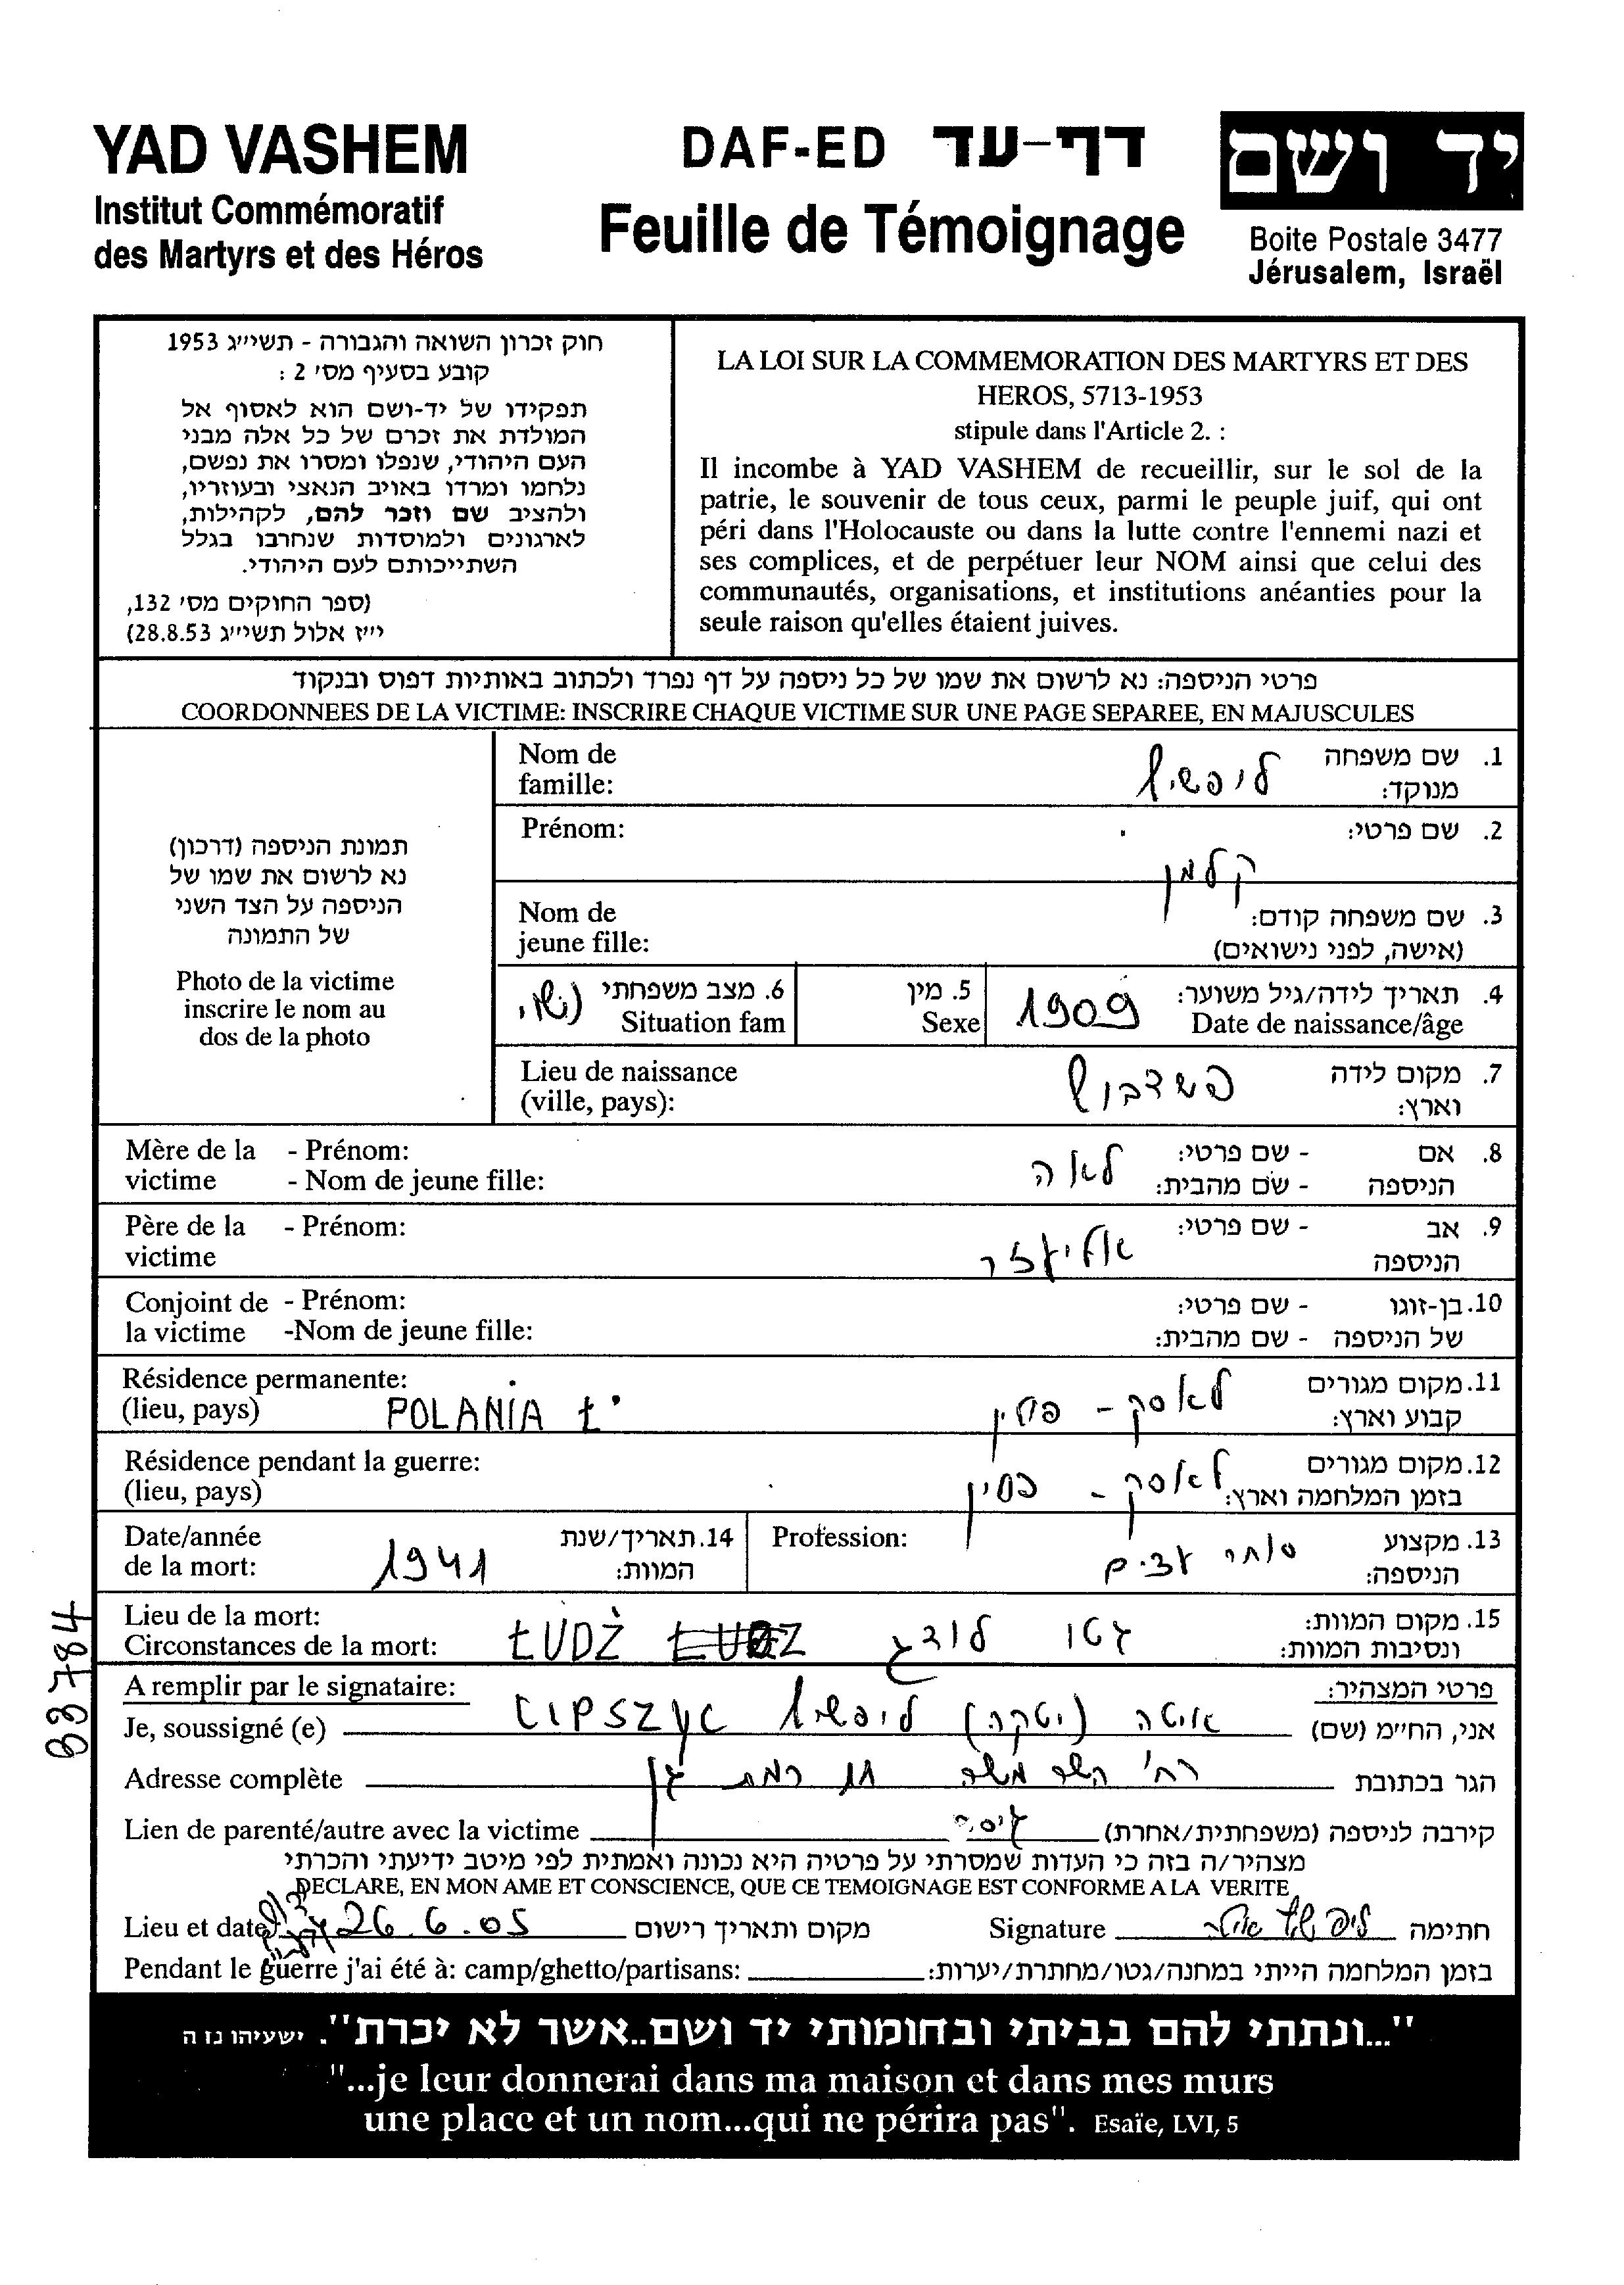 YAD VASHEM
Institut Commémoratif
des Martyrs et des Héros
DAF-ED דף-עד
Feuille de Témoignage
יד ושם
Boite Postale 3477
Jérusalem, Israël
חוק זכרון השואה והגבורה - תשי״ג 1953
קובע בסעיף מס׳ 2 :
תפקידו של יד-ושם הוא לאסוף אל
המולדת את זכרם של כל אלה מבני
העם היהודי, שנפלו ומסרו את נפשם,
נלחמו ומרדו באויב הנאצי ובעוזריו,
ולהציב שם וזכר להם, לקהילות,
לארגונים ולמוסדות שנחרבו בגלל
השתייכותם לעם היהודי.
(ספר החוקים מס׳ 132,
י״ז אלול תשי״ג 28.8.53)
LA LOI SUR LA COMMEMORATION DES MARTYRS ET DES
HEROS, 5713-1953
stipule dans l'Article 2. :
Il incombe à YAD VASHEM de recueillir, sur le sol de la
patrie, le souvenir de tous ceux, parmi le peuple juif, qui ont
péri dans l'Holocauste ou dans la lutte contre l'ennemi nazi et
ses complices, et de perpétuer leur NOM ainsi que celui des
communautés, organisations, et institutions anéanties pour la
seule raison qu'elles étaient juives.
פרטי הניספה: נא לרשום את שמו של כל ניספה על דף נפרד ולכתוב באותיות דפוס ובנקוד
COORDONNEES DE LA VICTIME: INSCRIRE CHAQUE VICTIME SUR UNE PAGE SEPAREE, EN MAJUSCULES
תמונת הניספה (דרכון)
נא לרשום את שמו של
הניספה על הצד השני
של התמונה
Photo de la victime
inscrire le nom au
dos de la photo
1. שם משפחה
מנוקד:
ליפשיץ
Nom de
famille:
2. שם פרטי:
קלמן
Prénom:
3. שם משפחה קודם:
(אישה, לפני נישואים)
Nom de
jeune fille:
4. תאריך לידה/גיל משוער:
Date de naissance/âge
1909
5. מין
Sexe
6. מצב משפחתי
Situation fam
נשוי
7. מקום לידה
וארץ:
Lieu de naissance
(ville, pays):
8. אם - שם פרטי:
הניספה - שם מהבית:
לאה
Mère de la - Prénom:
victime - Nom de jeune fille:
9. אב - שם פרטי:
הניספה
אליעזר
Père de la - Prénom:
victime
10. בן-זוגו - שם פרטי:
של הניספה - שם מהבית:
Conjoint de - Prénom:
la victime -Nom de jeune fille:
11. מקום מגורים
קבוע וארץ:
לאסק - פולין
Résidence permanente:
(lieu, pays) POLANIA Ł
12. מקום מגורים
בזמן המלחמה וארץ:
לאסק - פולין
Résidence pendant la guerre:
(lieu, pays)
13. מקצוע
הניספה:
סוחר עצים
Profession:
14. תאריך/שנת
המוות:
1941
Date/année
de la mort:
15. מקום המוות:
ונסיבות המוות:
גטו לודג
ŁUDŻ
Lieu de la mort:
Circonstances de la mort:
88784
פרטי המצהיר:
A remplir par le signataire:
אני, החי״מ (שם) איטה (יטקה) ליפשיץ LIPSZYC
Je, soussigné (e)
הגר בכתובת רח׳ השר משה 11 רמת גן
Adresse complète
קירבה לניספה (משפחתית/אחרת) גיסה
Lien de parenté/autre avec la victime
מצהיר/ה בזה כי העדות שמסרתי על פרטיה היא נכונה ואמתית לפי מיטב ידיעתי והכרתי
DECLARE, EN MON AME ET CONSCIENCE, QUE CE TEMOIGNAGE EST CONFORME A LA VERITE
חתימה ליפשיץ איטה Signature
מקום ותאריך רישום 26.6.05 Lieu et date
בזמן המלחמה הייתי במחנה/גטו/מחתרת/יערות:
Pendant le guerre j'ai été à: camp/ghetto/partisans:
"...ונתתי להם בביתי ובחומותי יד ושם..אשר לא יכרת". ישעיהו נז ה
"...je leur donnerai dans ma maison et dans mes murs
une place et un nom...qui ne périra pas". Esaïe, LVI, 5